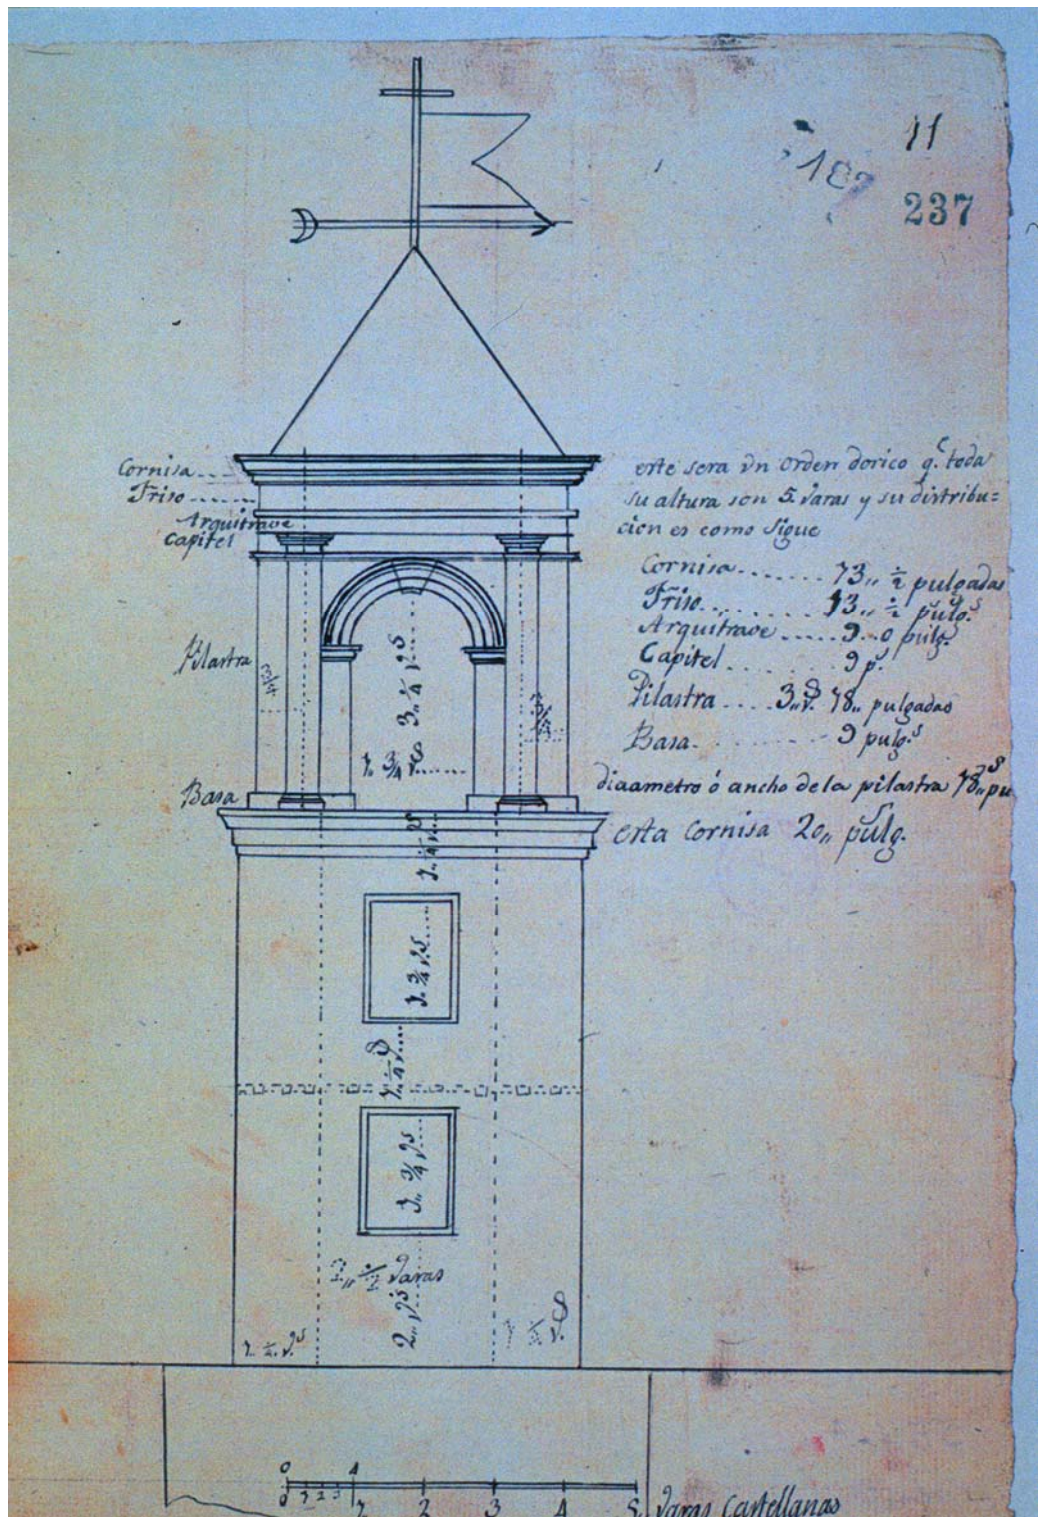 11
182
237
Cornisa
Friso
Arquitrave
Capitel
Pilastra
Basa
este sera vn orden dorico q.e toda
su altura son 5. varas y su distribu=
cion es como sigue
Cornisa....... 13,, ½ pulgadas
Friso......... 13,, ½ pulg.s
Arquitrave..... 9..0 pulg.s
Capitel........ 9 p.s
Pilastra.... 3,,v.s 18,, pulgadas
Basa......... 9 pulg.s
diaametro ó ancho de la pilastra 18,,pu
esta Cornisa 20,, pulg.s
3/4
3,, ¼ v.s
3/4
1,, 3/4 v.s
1,, ¼ v.s
1,, 3/4 v.s
1,, ¼ v.s
1,, 3/4 v.s
2,, ½ varas
2,, v.s
1,, ¼. v.s
1 ¼ v.s
0 1
0 1 2 3 1 2 3 4 5 Varas Castellanas